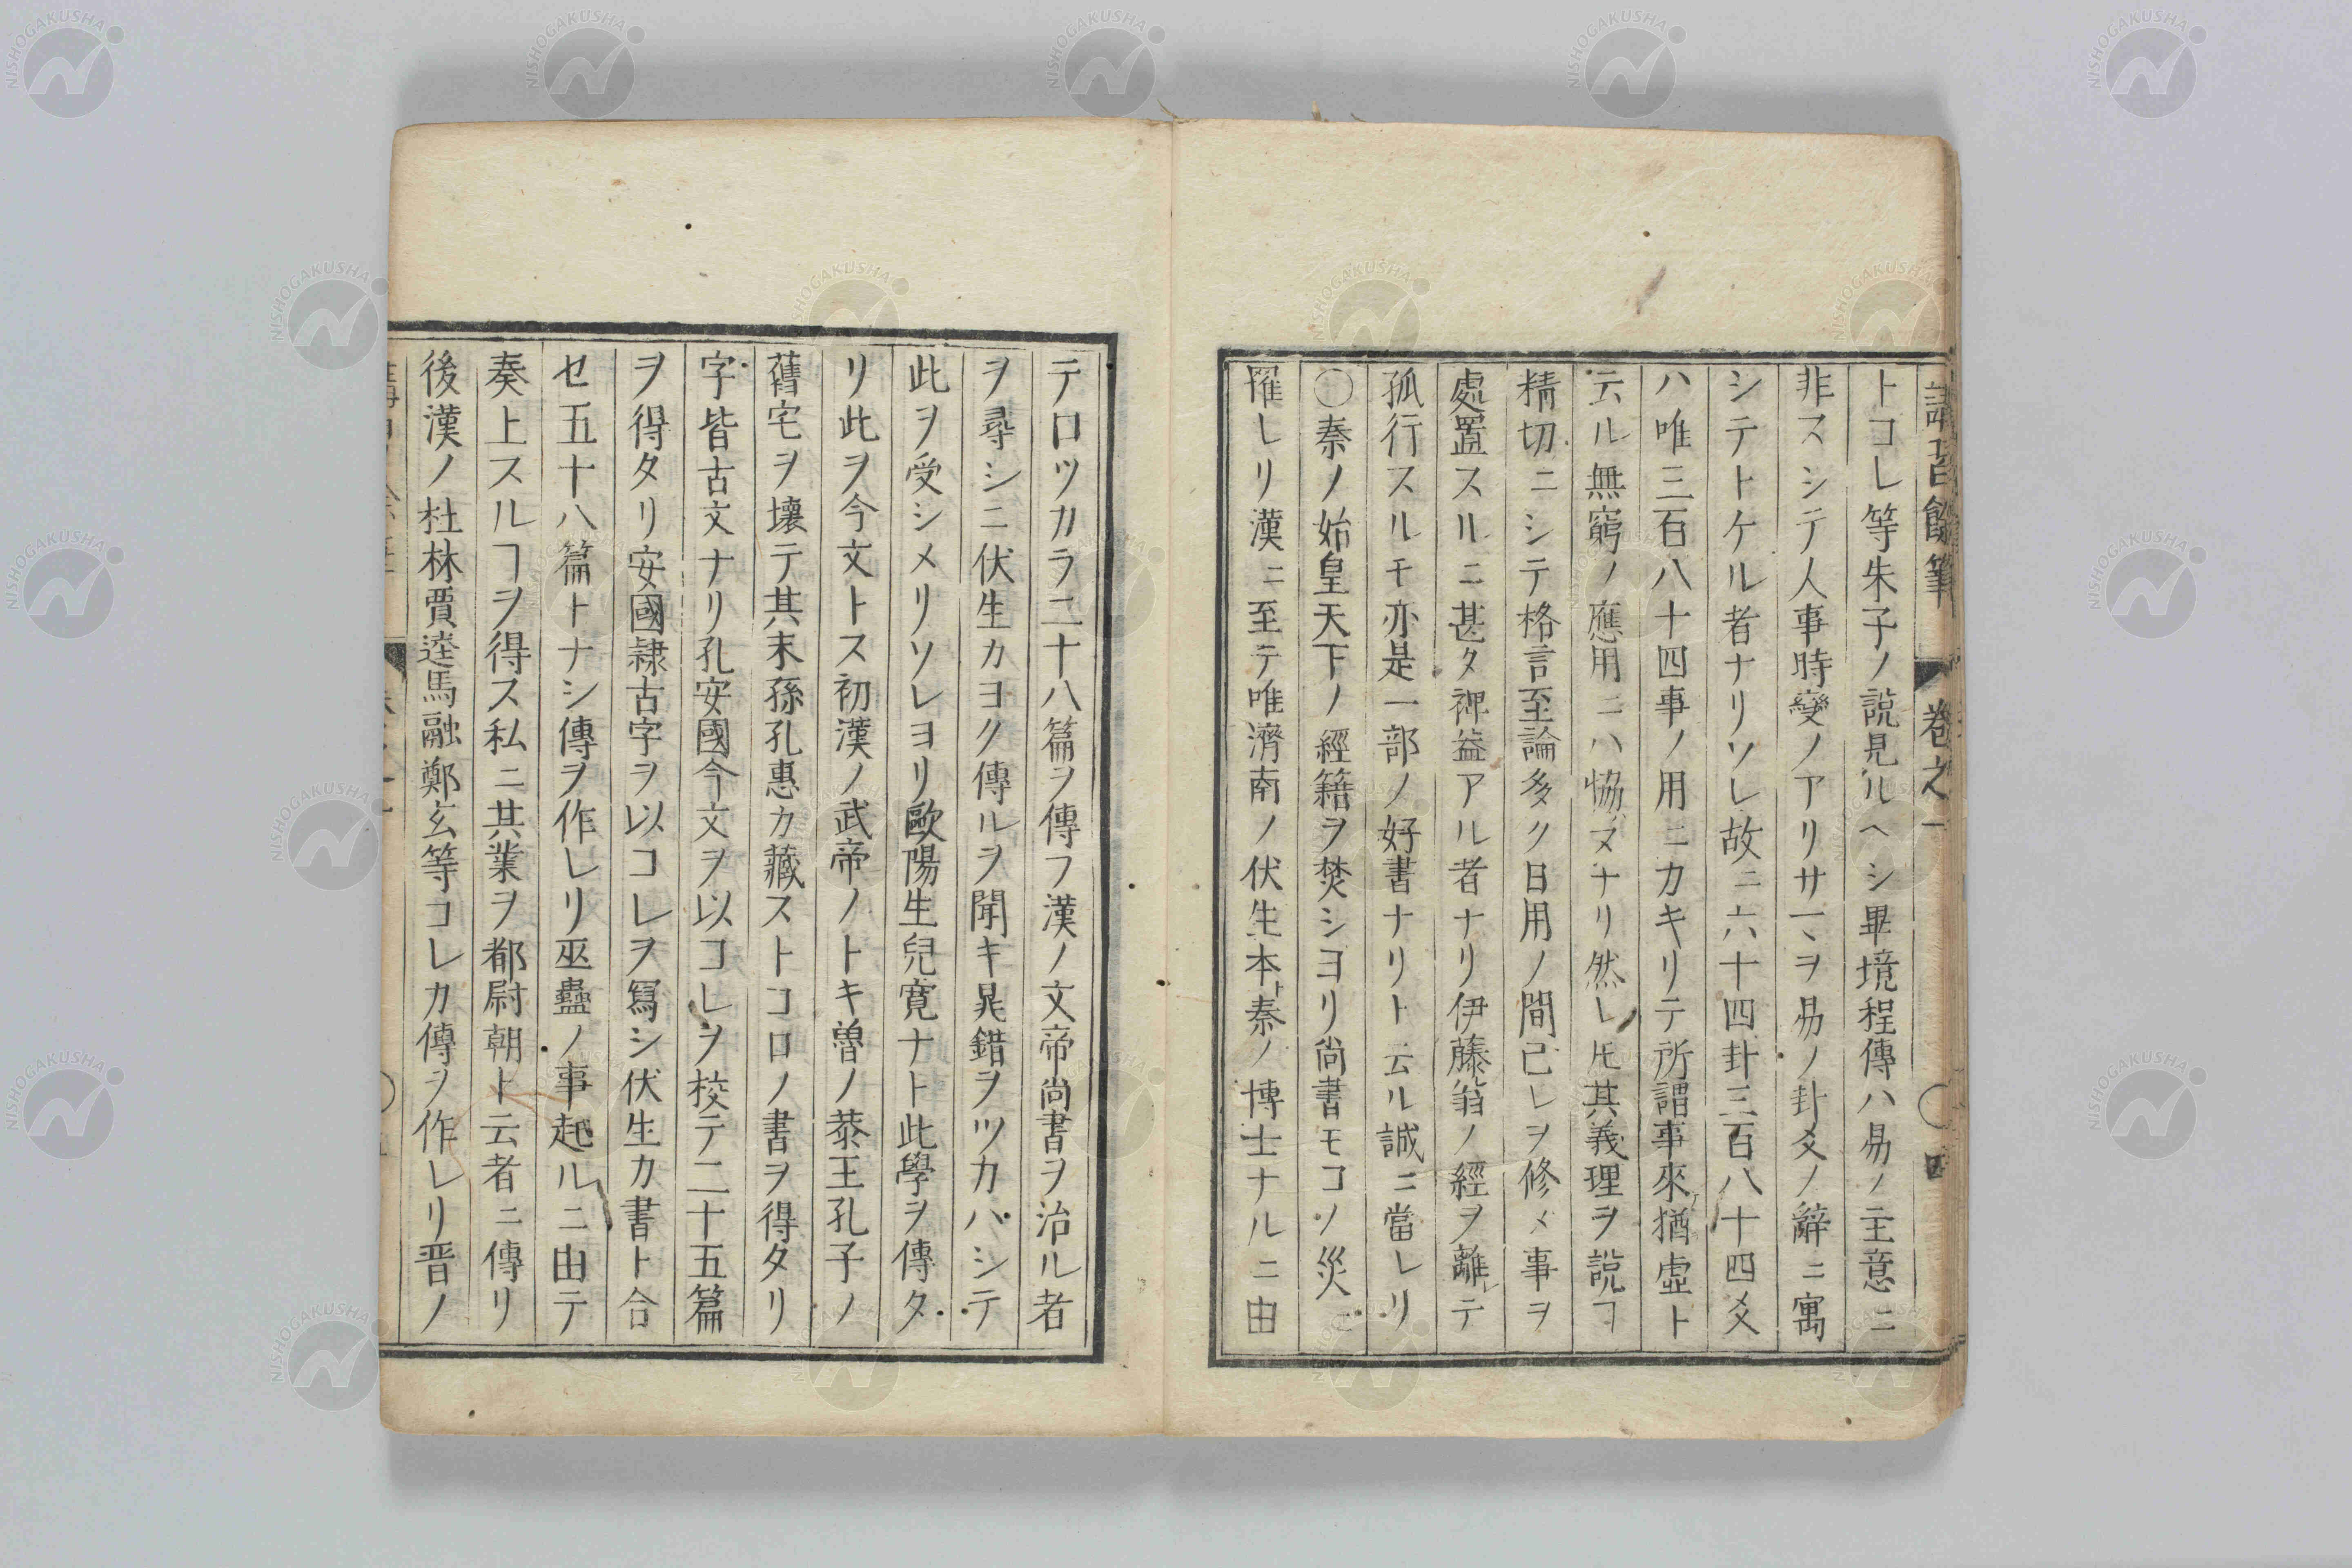 講習餘筆　巻之一　〇四
トコレ等朱子ノ説見ルヘシ畢境程傳ハ易ノ主意ニ
非スシテ人事時變ノアリサマヲ易ノ卦爻ノ辭ニ寓
シテトケル者ナリソレ故ニ六十四卦三百八十四爻
ハ唯三百八十四事ノ用ニカキリテ所謂事來猶虚ト
云ル無窮ノ應用ニハ恊ヌナリ然レ𪜈其義理ヲ説ヿ
精切ニシテ格言至論多ク日用ノ間己レヲ修メ事ヲ
處置スルニ甚タ裨益アル者ナリ伊藤翁ノ經ヲ離レテ
孤行スルモ亦是一部ノ好書ナリト云ル誠ニ當レリ
〇秦ノ始皇天下ノ經籍ヲ焚シヨリ尚書モコノ災ニ
罹レリ漢ニ至テ唯濟南ノ伏生本ト秦ノ博士ナルニ由
テロツカラ二十八篇ヲ傳フ漢ノ文帝尚書ヲ治ル者
ヲ尋シニ伏生カヨク傳ルヲ聞キ晁錯ヲツカハシテ
此ヲ受シメリソレヨリ歐陽生兒寛ナト此學ヲ傳タ
リ此ヲ今文トス初漢ノ武帝ノトキ曽ノ恭王孔子ノ
舊宅ヲ壊テ其末孫孔惠カ藏ストコロノ書ヲ得タリ
字皆古文ナリ孔安國今文ヲ以コレヲ校テ二十五篇
ヲ得タリ安國隷古字ヲ以コレヲ寫シ伏生カ書ト合
セ五十八篇トナシ傳ヲ作レリ巫蠱ノ事起ルニ由テ
奏上スルヿヲ得ス私ニ其業ヲ都尉朝ト云者ニ傳リ
後漢ノ杜林賈逵馬融鄭玄等コレカ傳ヲ作レリ晋ノ
NISHOGAKUSHA